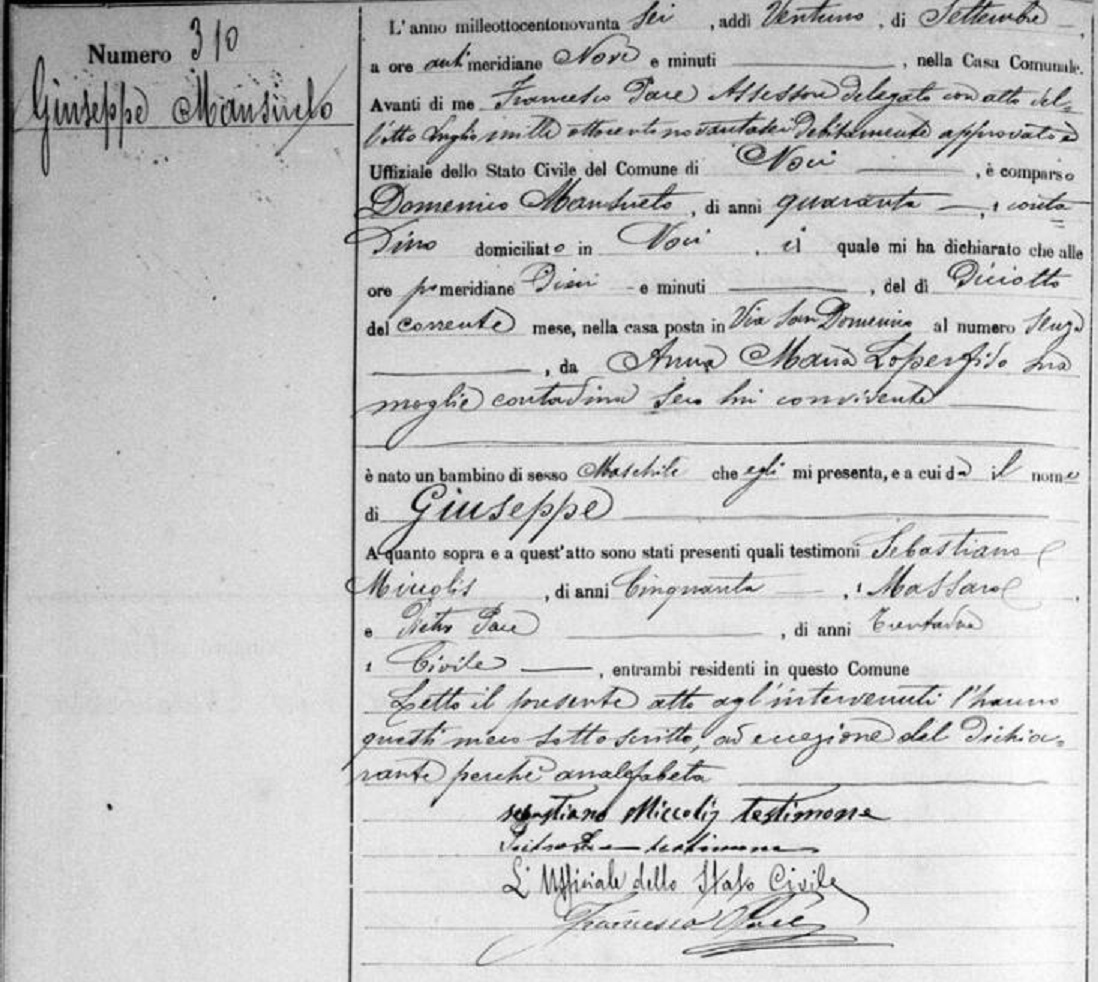 Numero 310
Giuseppe Mansueto
L'anno milleottocentonovanta sei, addì Ventuno, di Settembre,
a ore antimeridiane Nove e minuti, nella Casa Comunale.
Avanti di me Francesco Pace Assessore delegato con atto del-
l'otto Luglio mille ottocento novantasei debitamente approvato
Uffiziale dello Stato Civile del Comune di Noci, è comparso
Domenico Mansueto, di anni quaranta, conta
dino domiciliato in Noci, il quale mi ha dichiarato che alle
ore pomeridiane Dieci e minuti, del dì Diciotto
del corrente mese, nella casa posta in Via San Domenico al numero senza
, da Anna Maria Loperfido sua
moglie contadina seco lui convivente
è nato un bambino di sesso Maschile che egli mi presenta, e a cui dà il nome
di Giuseppe
A quanto sopra e a quest'atto sono stati presenti quali testimoni Sebastiano
Miccolis, di anni Cinquanta, Massaro,
e Pietro Pace, di anni Trentadue
Civile, entrambi residenti in questo Comune
Letto il presente atto agl'intervenuti l'hanno
questi meco sottoscritto, ad eccezione del dichia-
rante perché analfabeta
sebastiano Miccolis testimone
Pietro Pace testimone
L'Uffiziale dello Stato Civile
Francesco Pace